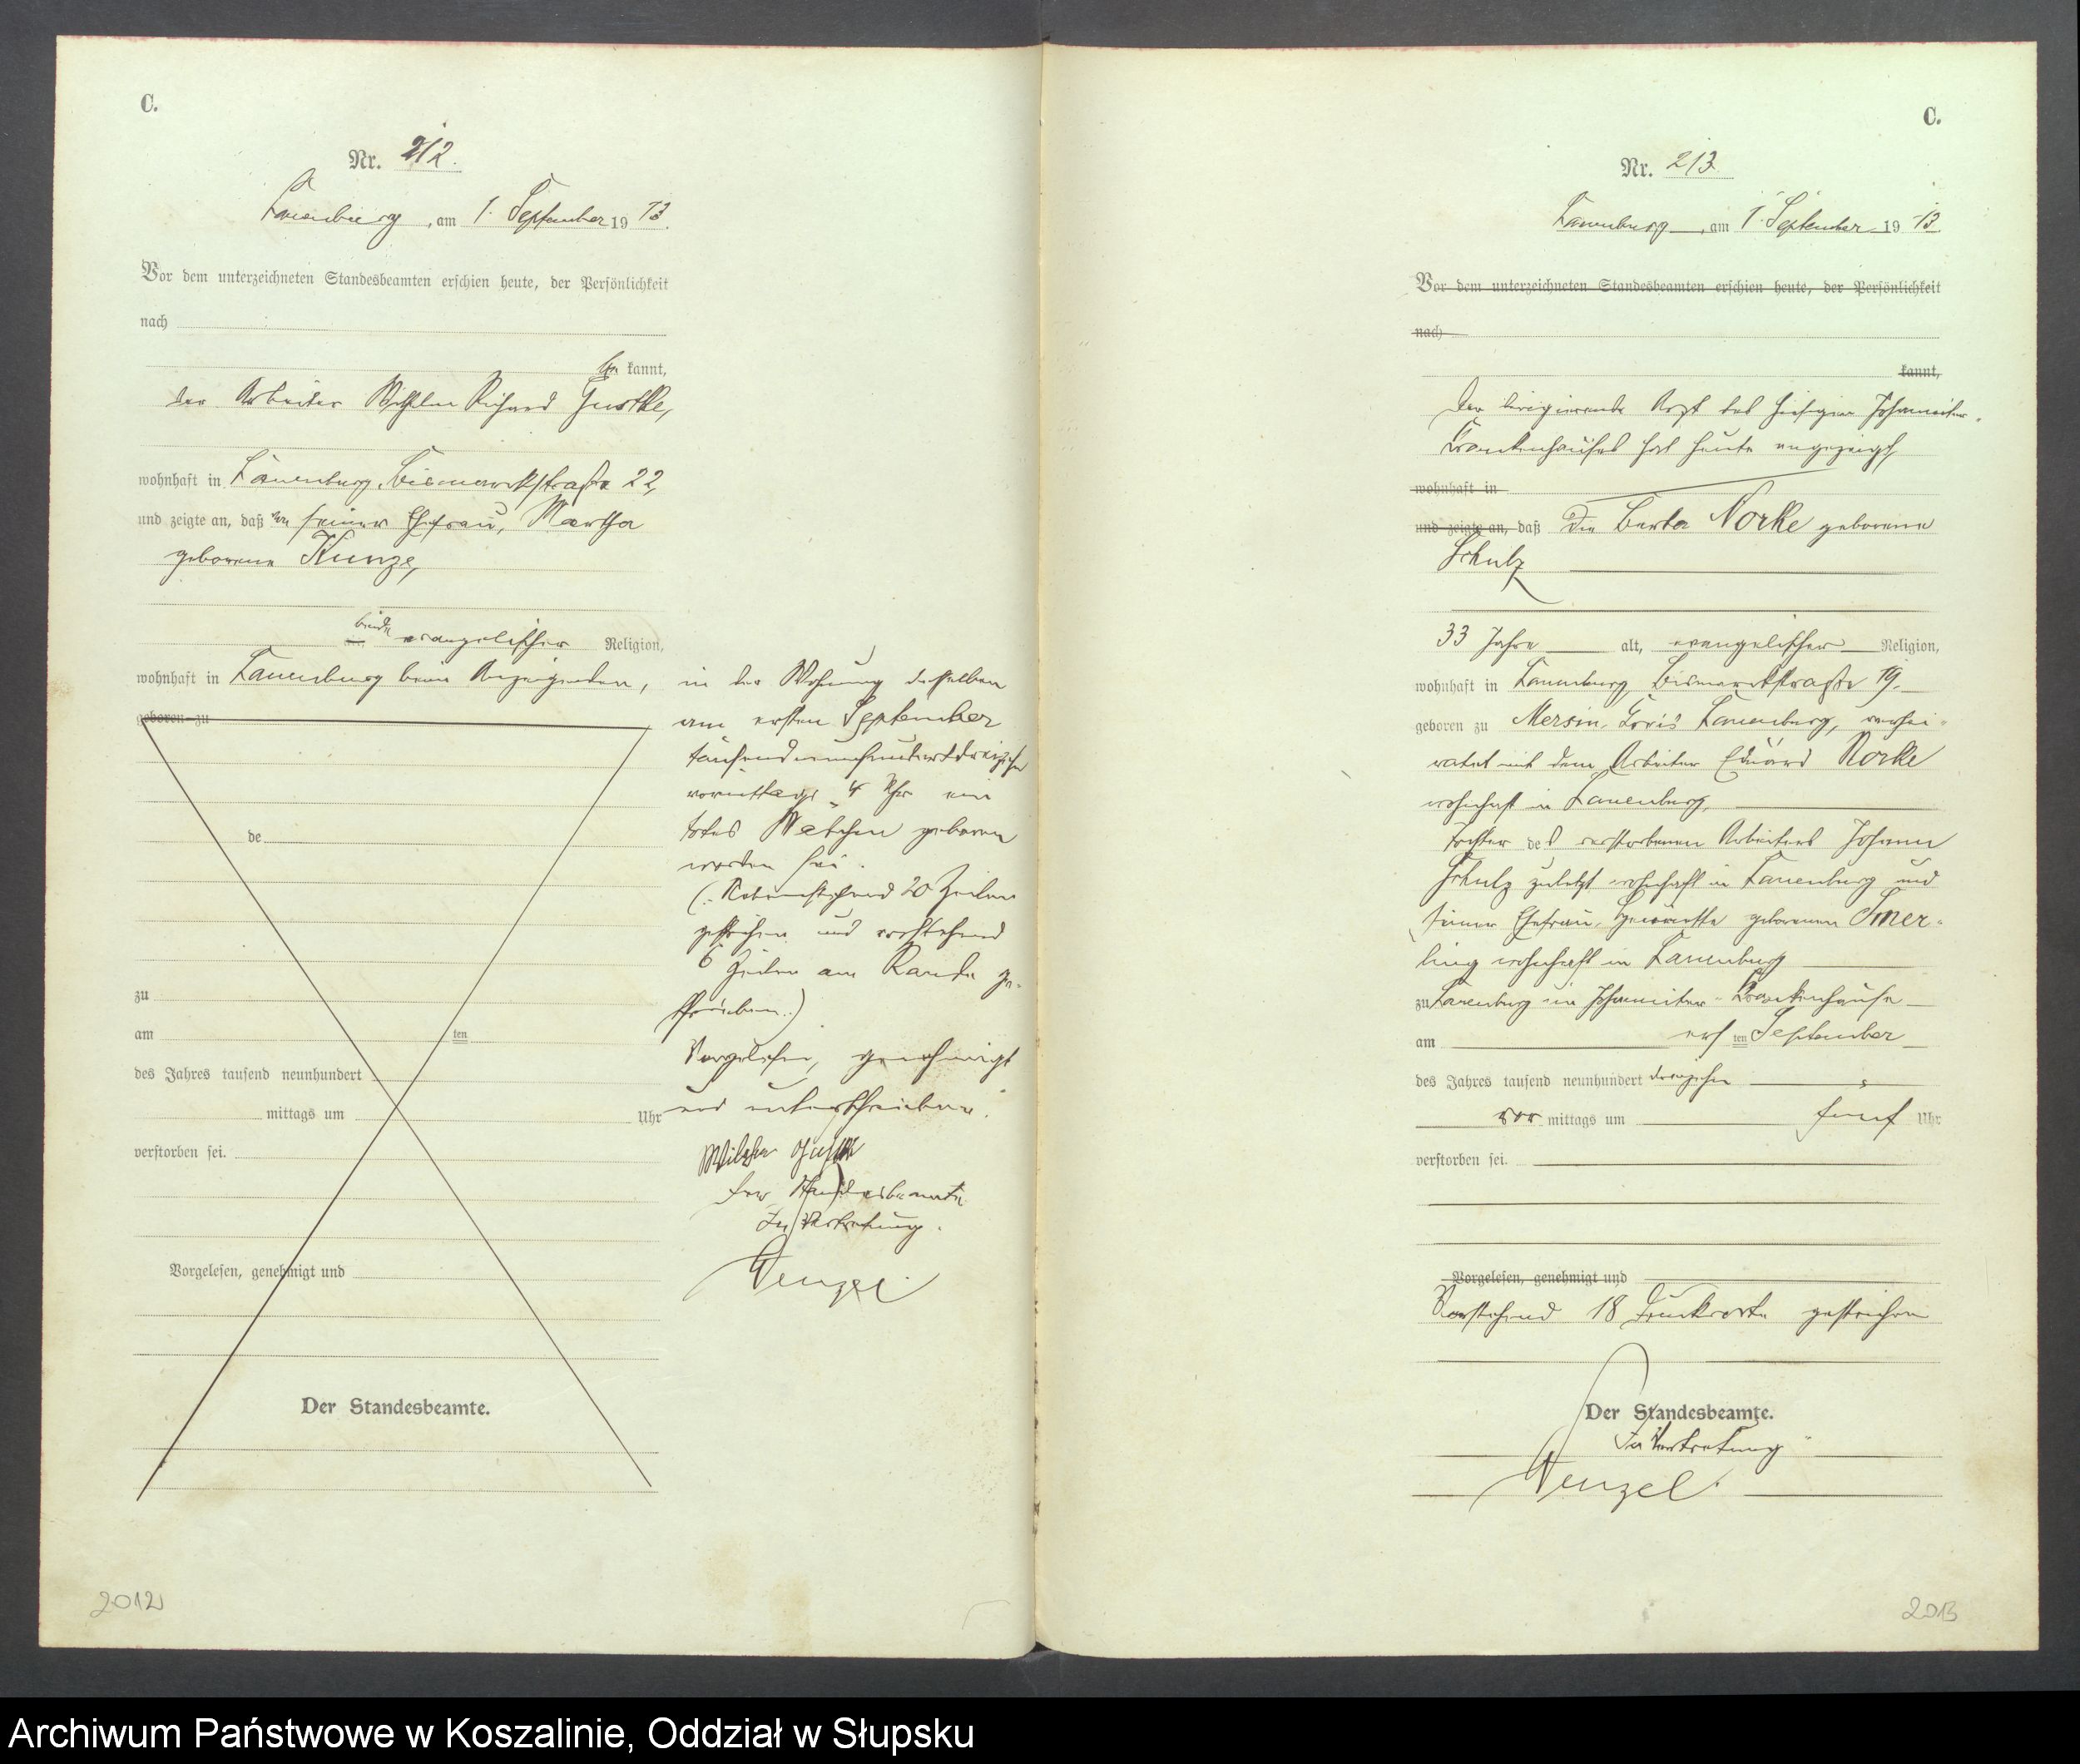 C.
Nr. 212.
Lauenburg, am 1. September 1913.
Vor dem unterzeichneten Standesbeamten erschien heute, der Persönlichkeit
nach
be kannt,
der Arbeiter Wilhelm Richard Gustke,
wohnhaft in Lauenburg, Bismarckstraße 22,
und zeigte an, daß von seiner Ehefrau, Martha
geborene Kunze,
beide evangelischer Religion,
wohnhaft in Lauenburg beim Anzeigenden,
geboren zu
de
zu
am ten
des Jahres tausend neunhundert
mittags um Uhr
verstorben sei.
Vorgelesen, genehmigt und
Der Standesbeamte.
in der Wohnung desselben
am ersten September
tausendneunhundertdreizehn
vormittags 4 Uhr ein
totes Mädchen geboren
worden sei.
(: Nebenstehend 20 Zeilen
gestrichen und vorstehend
6 Zeilen am Rande ge-
schrieben.:)
Vorgelesen, genehmigt
und unterschrieben.
Wilhelm Gustke
Der Standesbeamte
In Vertretung.
Wenzel
2012
C.
Nr. 213.
Lauenburg, am 1. September 1913.
Vor dem unterzeichneten Standesbeamten erschien heute, der Persönlichkeit
nach
kannt,
Der dirigierende Arzt des hiesigen Johanniter-
Krankenhauses hat heute angezeigt,
wohnhaft in
und zeigte an, daß die Berta Norke geborene
Schulz
33 Jahre alt, evangelischer Religion,
wohnhaft in Lauenburg, Bismarckstraße 19,
geboren zu Mersin, Kreis Lauenburg, verhei-
ratet mit dem Arbeiter Eduard Norke
wohnhaft in Lauenburg,
Tochter des verstorbenen Arbeiters Johann
Schulz zuletzt wohnhaft in Lauenburg und
seiner Ehefrau, geborenen Smer-
ling wohnhaft in Lauenburg
zu Lauenburg im Johanniter-Krankenhause
am ersten September
des Jahres tausend neunhundert dreizehn
vor mittags um fünf Uhr
verstorben sei.
Vorgelesen, genehmigt und
Vorstehend 18 Druckworte gestrichen
Der Standesbeamte.
In Vertretung
Wenzel.
2013
Archiwum Państwowe w Koszalinie, Oddział w Słupsku